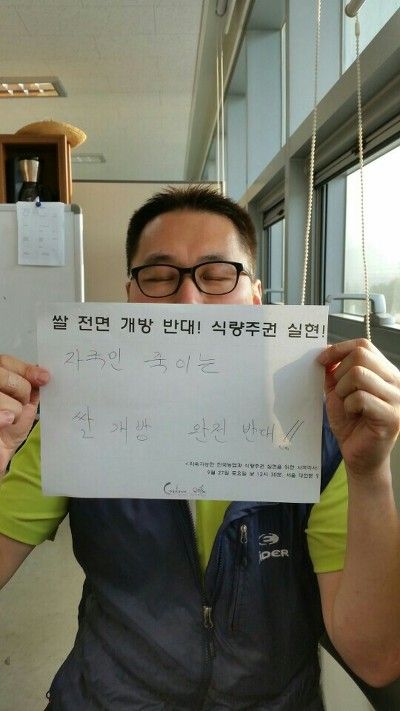 쌀 전면 개방 반대! 식량주권 실현!
자국민 죽이는
쌀 개방 완전 반대 !!
<지속가능한 한국농업과 식량주권 실현을 위한 시국미사>
9월 27일 토요일 낮 12시 30분, 서울 대한문
IDER